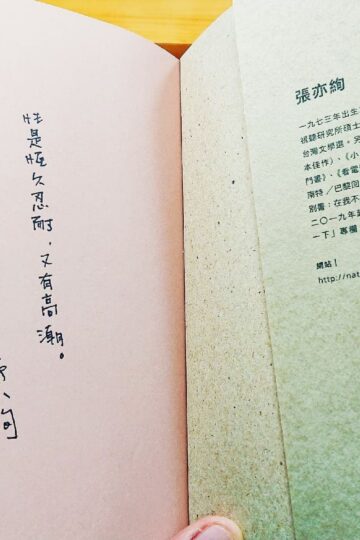 性是恆久忍耐，又有高潮。
張亦絢
一九七三年出生
視聽研究所碩士
台灣文學選，另
本佳作）、《小
門書》、《看電
南特／巴黎回
別冊：在我不
二〇一九年起
一下」專欄
網站｜
http://nat